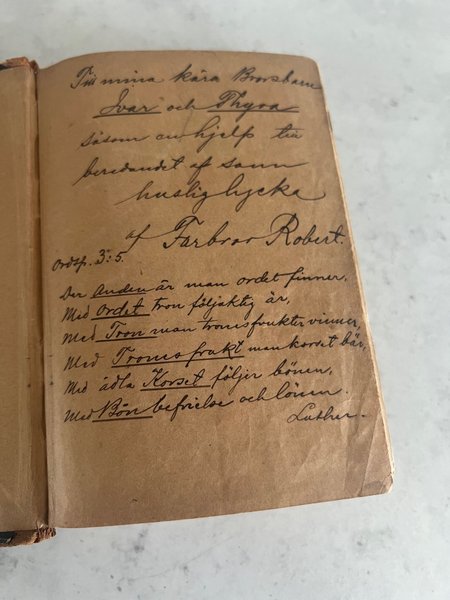 Till mina kära Brorsbarn
Ivar och Thyra
såsom en hjelp till
beredandet af sann
huslig lycka
af Farbror Robert.
Ordsp. 3:5.
Der Anden är man ordet finner,
Med Ordet tron följaktig är,
Med Tron man tronsfrukter vinner,
Med Trons frukt man korset bär,
Med ädla Korset följer bönen,
Med Bön befrielse och lönen.
Luther.